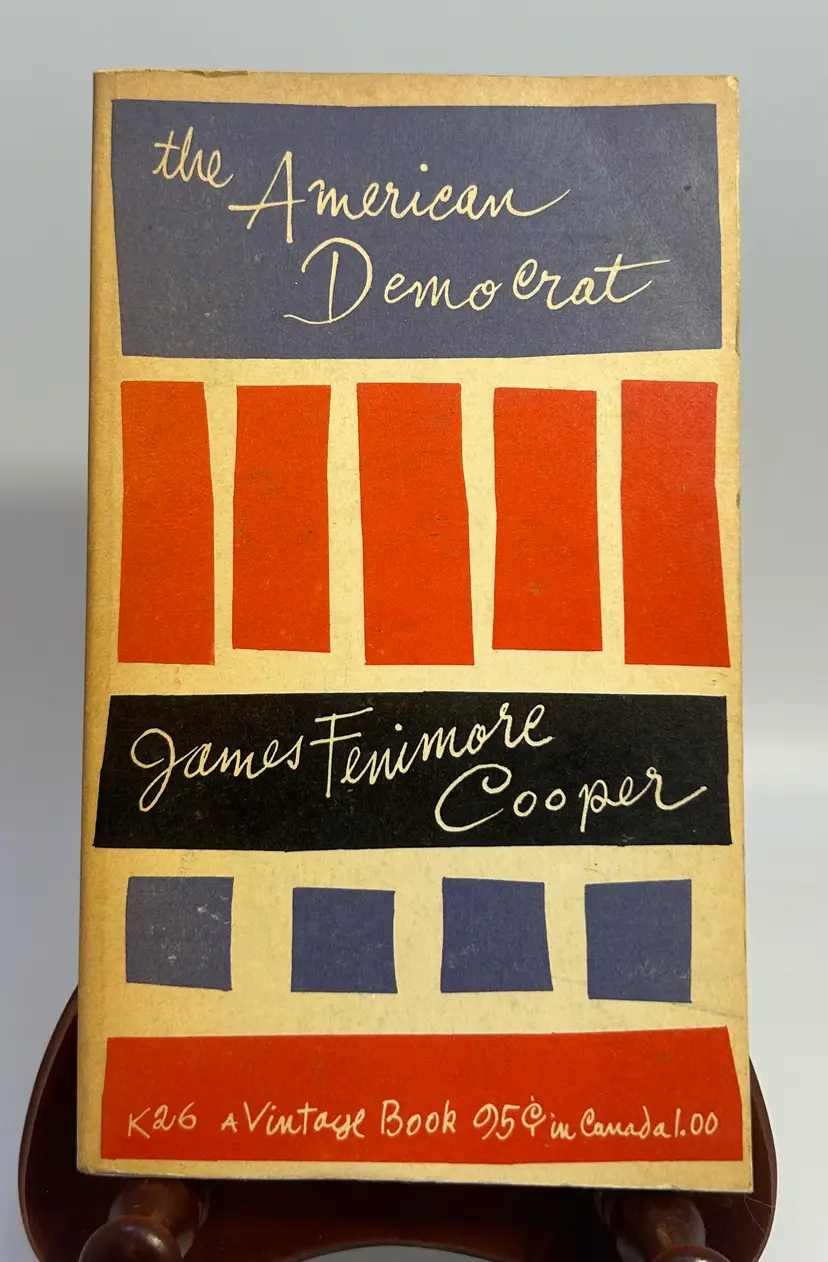 the American
Democrat
James Fenimore
Cooper
K26 A Vintage Book 95¢ in Canada 1.00